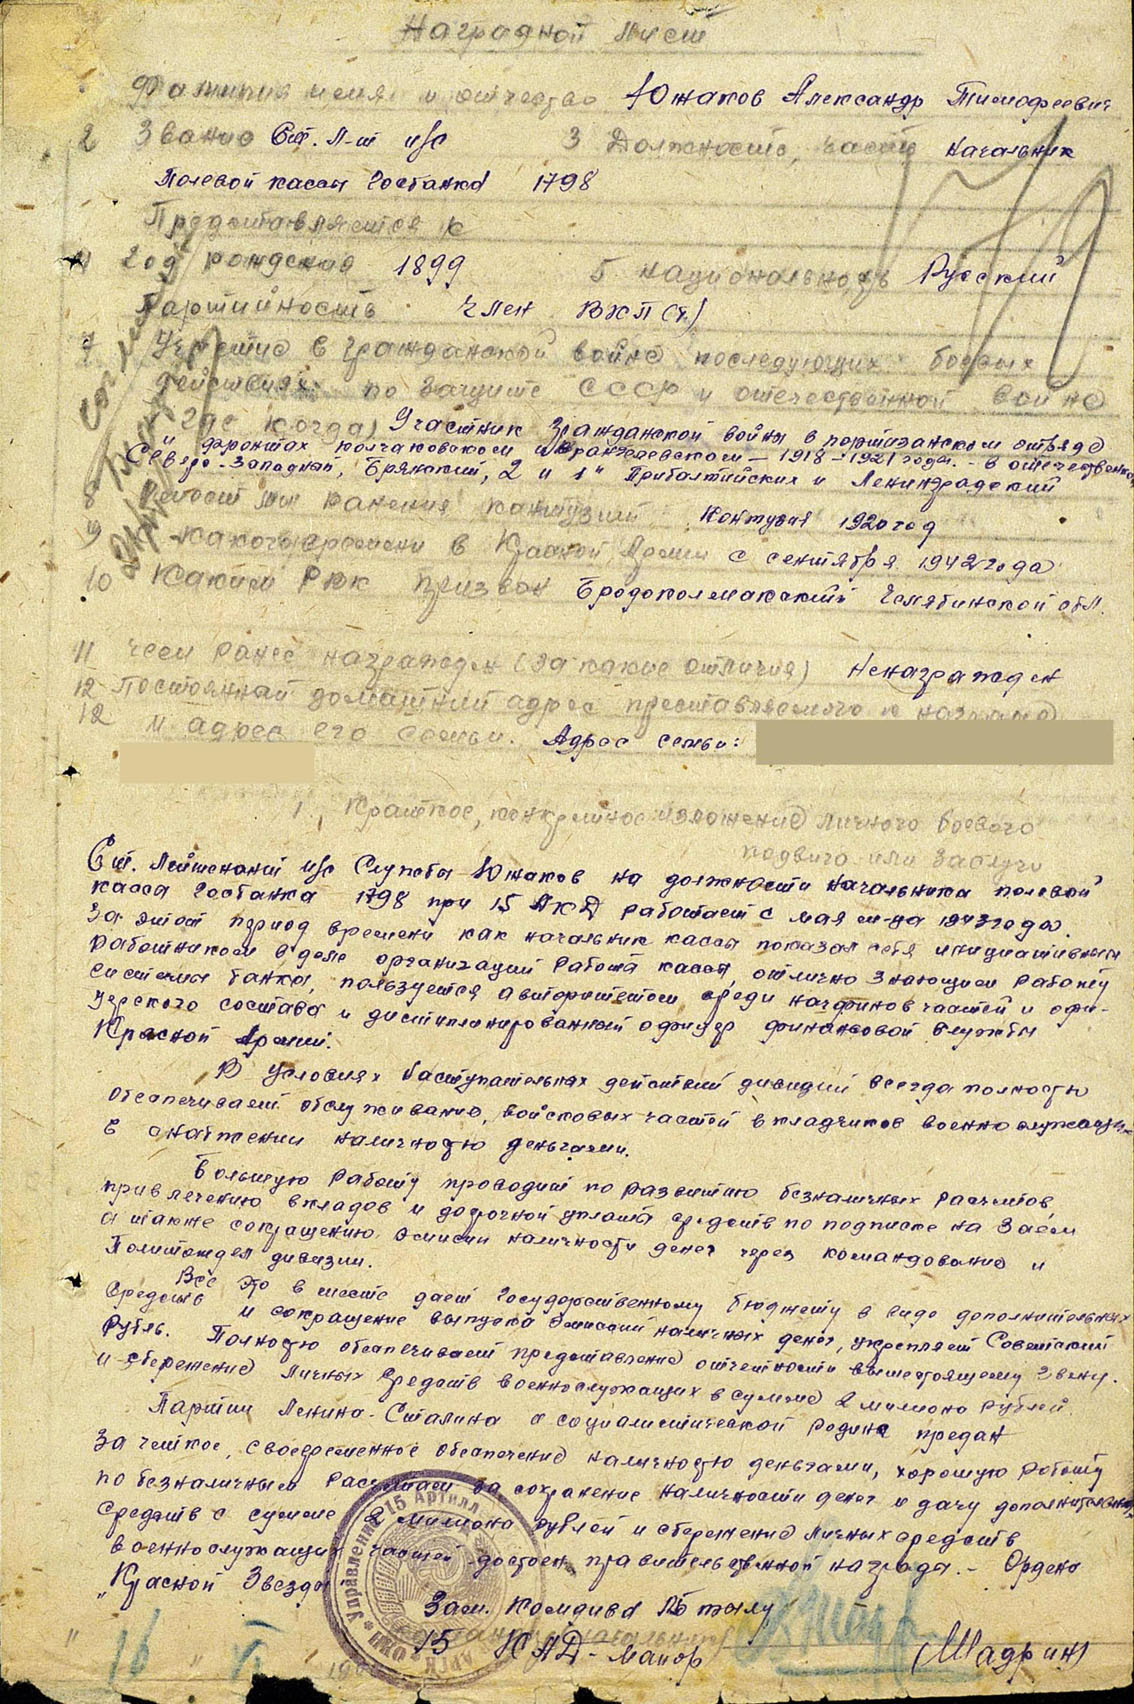 Наградной лист
Фамилия имя и отчество Южаков Александр Тимофеевич
2 Звание Ст. Л-т и/с 3 Должность, часть Начальник
Полевой кассы Госбанка 1798
Представляется к
4 Год рождения 1899 5 национальность Русский
Партийность Член ВКП(б)
7 Участие в гражданской войне последующих боевых
действиях по защите СССР и отечественной войне
(где когда) Участник Гражданской войны в партизанском отряде
и фронтах Колчаковском и Врангелевском – 1918–1921 годы. – в отечественной
Северо-Западный, Брянский, 2 и 1" Прибалтийских и Ленинградский
ранения контузии Контузия 1920 год
9 какого времени в Красной Армии с сентября 1942 года
10 Каким РВК призван Бродоколмакский Челябинской обл.
11 чем ранее награжден (за какие отличия) Ненагражден
12 Постоянный домашний адрес преставляемого к награде
12 и адрес его семьи. Адрес семьи:
1. Краткое, конкретное изложение личного боевого
подвига или заслуги
Ст. Лейтенант и/с Службы Южаков на должности начальника полевой
касса Госбанка 1798 при 15 АКД работает с мая м-ца 1943 года.
За этот период времени как начальник кассы показал себя инициативным
работником в деле организаций работы кассы, отлично знающием работу
системы банка, пользуется авторитетом среди начфинов частей и офи-
церского состава и дистиплинированный офицер финансовой службы
Красной Армии.
В условиях наступательных действий дивизий всегда полностью
обеспечивает обслуживание, войсковых частей вкладчиков военнослужащих
в снабжении наличностью деньгами.
Большую работу проводит по развитию безналичных расчетов,
привлечению вкладов и досрочной уплаты средств по подписке на Заём
а также сокращению эмисии наличности денег через командование и
Политотдел дивизии.
Все это в месте дает Государственному бюджету в виде дополнительных
средств и сокращение выпуска эмиссий наличных денег, укрепляет Советский
рубль. Полностью обеспечивает представление отчетности вышестоящему Звену.
и сбережение личных средств военнослужащих в сумме 2 милиона рублей
Партии Ленина-Сталина и социалистической родине предан
За четкое, своевременное обеспечение наличностью деньгами, хорошую работу
по безналичным рассчетам за сохранение наличности денег и дачу дополнительных
средств с сумме 2 милиона рублей и сбережение личных средств
военнослужащих частей достоен правительственной награда. – Ордена
"Красной Звезды"
Зам. Комдива по тылу
15 КАД – майор (Шадрин)
" 16 " VI 19
Управление 15 Артилл